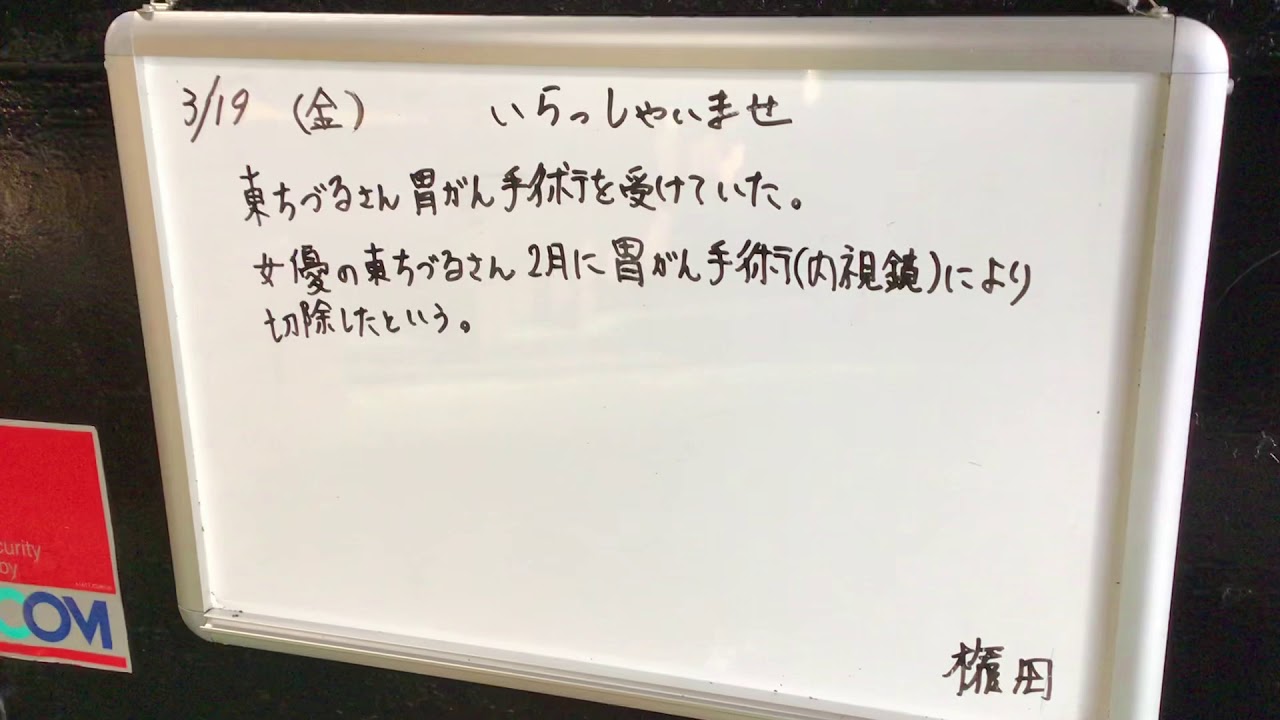 3/19 (金) いらっしゃいませ
東ちづるさん胃がん手術を受けていた。
女優の東ちづるさん2月に胃がん手術(内視鏡)により
切除したという。
権田
curity
by
COM